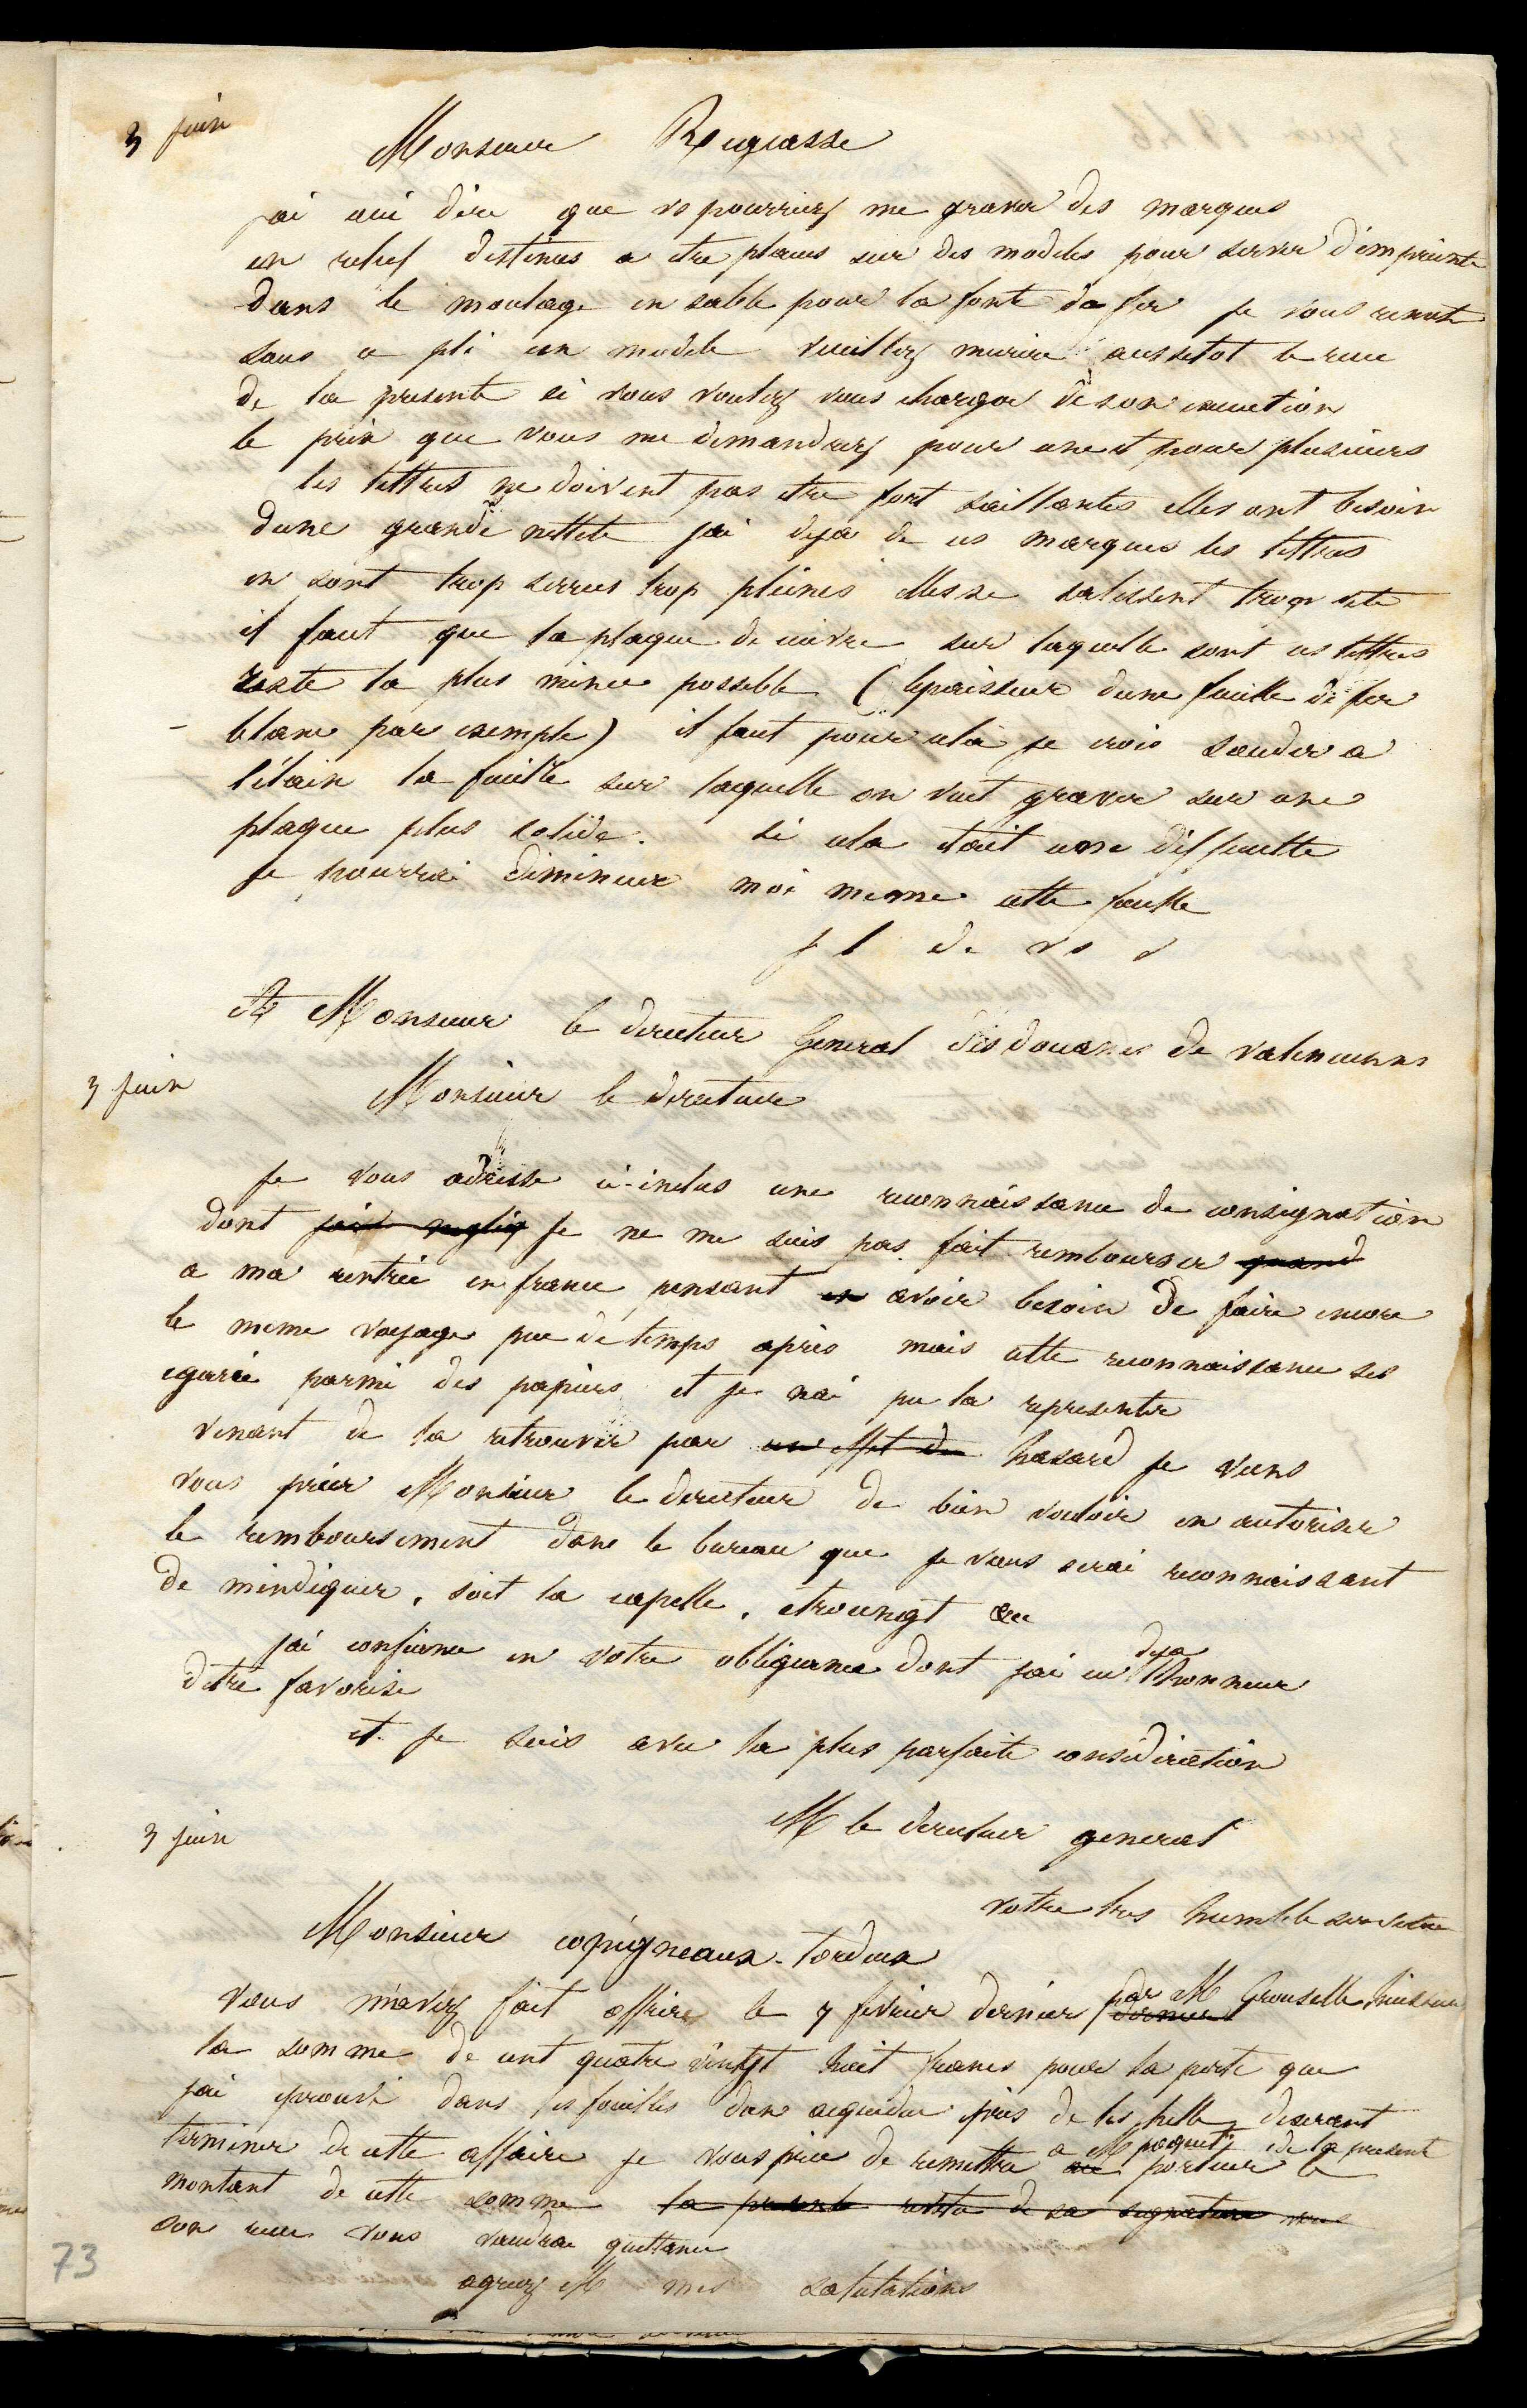 3 juin
Monsieur Rugiasse
jai oui dire que vs pourriez me graver des marques
en relief destinés a etre placés sur des modeles pour servir d'empreinte
dans le moulage en sable pour la fonte de fer je vous remets
sous ce pli un modele veuillez mecrire aussitot le recu
de la presente si vous voulez vous charger de son execution
le prix que vous me demandrez pour une et pour plusieurs
les lettres ne doivent pas etre fort saillantes elles ont besoin
dune grande netteté jai deja de ces marques les lettres
en sont trop serrees trop pleines elles se salissent trop vite
il faut que la plaque de cuivre sur laquelle sont ces lettres
reste la plus mince possible (lepaisseur dune feuille de fer
blanc par exemple) il faut pour cela je crois souder a
létain la feuille sur laquelle on veut graver sur une
plaque plus solide. si cela etait une difficulte
je pourrai diminuer moi meme cette feuille
j l de vs v
A Monsieur le directeur General des douanes de valenciennes
3 juin
Monsieur le directeur
Je vous adresse ci-inclus une reconnaissance de consignation
dont jai neglig je ne me suis pas fait rembourser quand
a ma rentrée en france pensant en avoir besoin de faire encore
le meme voyage peu de temps après mais cette reconnaissance ses
egarée parmi des papiers et je nai pu la representer
venant de la retrouver par un effet du hasard je viens
vous prier Monsieur le directeur de bien vouloir en autoriser
le remboursement dans le bureau que je vous serai reconnaissant
de mindiquer, soit la capelle, étroungt ou
jai confiance en votre obligeance dont jai eu deja lhonneur
detre favorisé
et je suis avec la plus parfaite considération
M le directeur general
votre tres humble serviteur
3 juin
Monsieur copigneaux-tordeux
vous m'avez fait offrire le 7 fevrier dernier par M Grouselle huissier
dernier
la somme de cent quatre vingt huit francs pour la perte que
jai eprouvé dans les fouilles dun aqueduc près de les helle desirant
terminer de cette affaire je vous prie de remettre au a M paquet porteur de la presente le
montant de cette somme la presente revetu de sa signature vous
son recu vous vaudra quittance
agreez M mes salutations
73